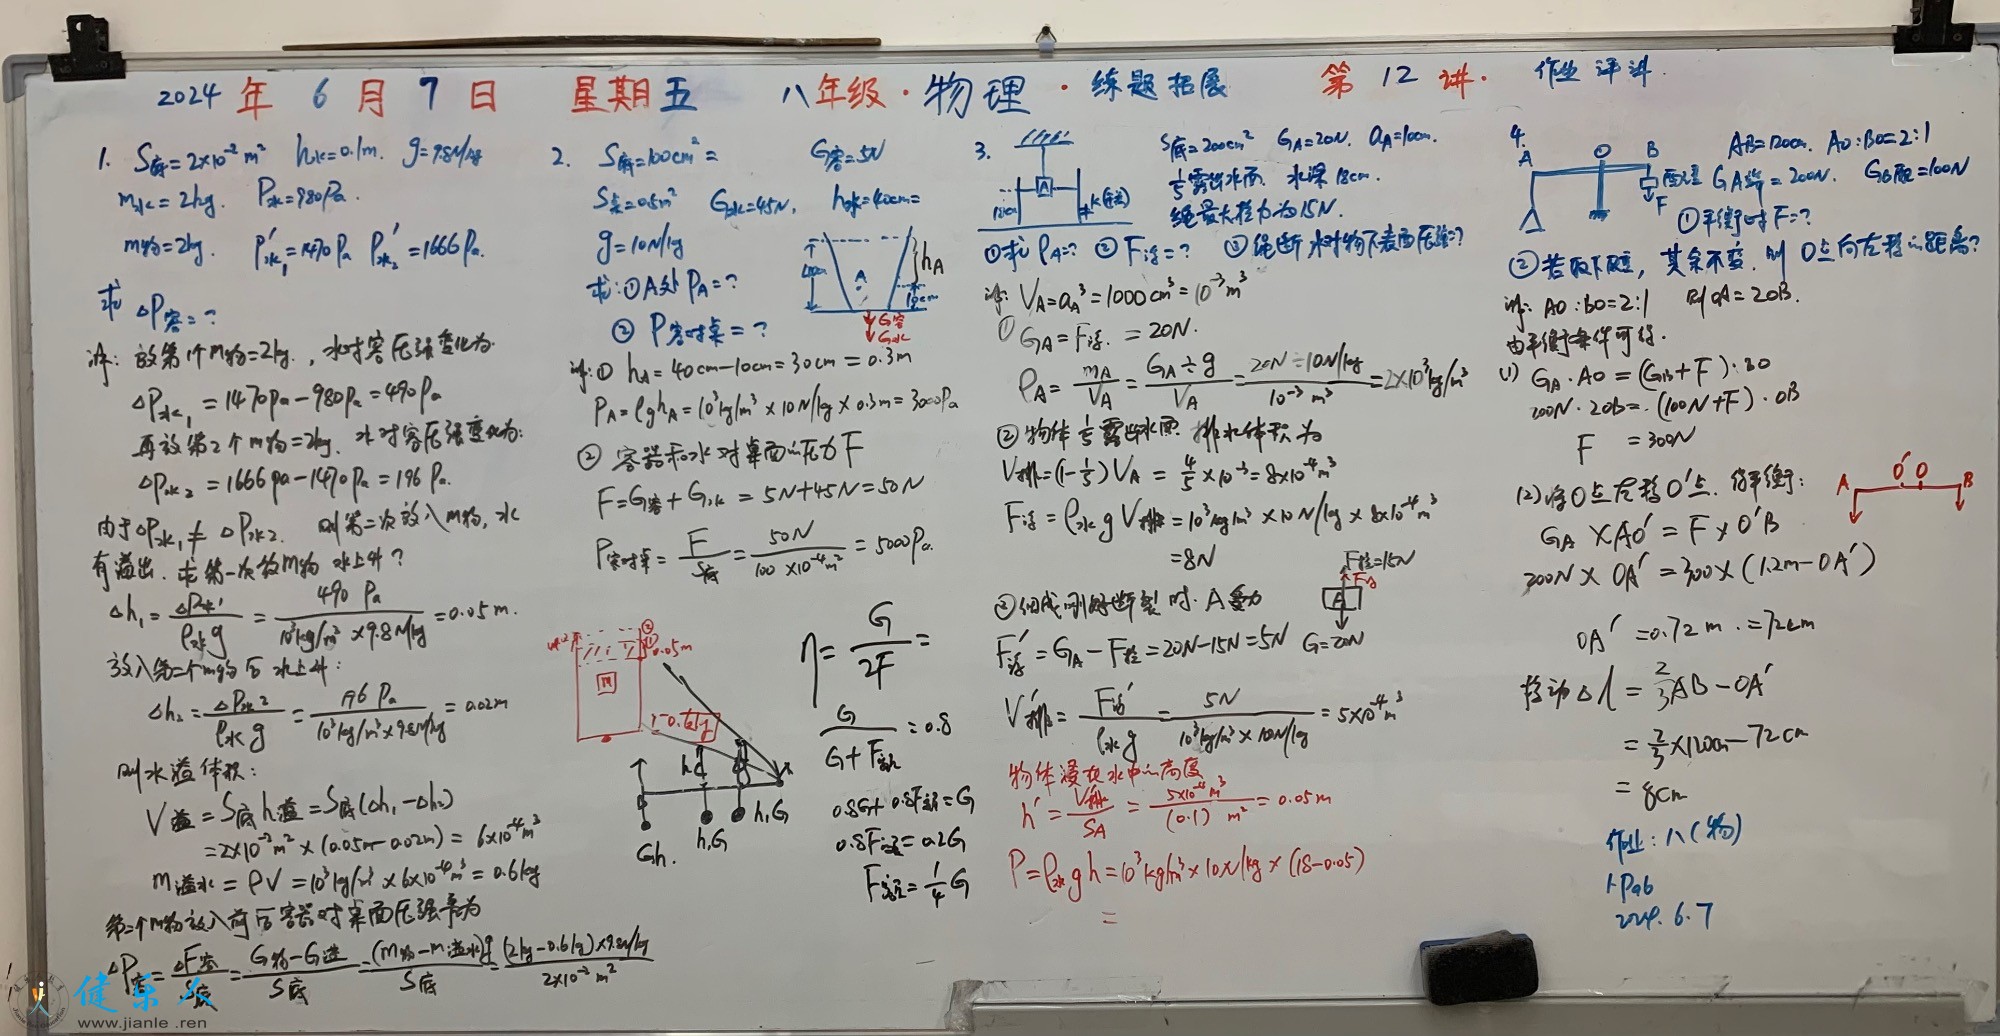 2024 年 6 月 7 日 星期五 八年级·物理·练题拓展 第 12 讲. 作业评讲
1. S底=2×10⁻² m² h水=0.1m. g=9.8N/kg
m水=2kg. P水=980Pa.
m物=2kg. P水₁'=1470Pa P水₂'=1666Pa.
求 △P容=?
解: 放第1个m物=2kg., 水对容压强变化为
△P水₁=1470Pa-980Pa=490Pa
再放第2个m物=2kg. 水对容压强变化为:
△P水₂=1666Pa-1470Pa=196Pa.
由于△P水₁≠△P水₂. 则第二次放入m物, 水
有溢出. 求第一次放m物 水上升?
△h₁=△P水₁/ρ水g=490Pa/10³kg/m³×9.8N/kg=0.05m.
放入第二个m物后 水上升:
△h₂=△P水₂/ρ水g=196Pa/10³kg/m³×9.8N/kg=0.02m
则水溢体积:
V溢=S底h溢=S底(△h₁-△h₂)
=2×10⁻²m²×(0.05m-0.02m)=6×10⁻⁴m³
m溢水=ρV=10³kg/m³×6×10⁻⁴m³=0.6kg
第二个m物放入前后容器对桌面压强差为
△P容=△F容/S底=G物-G溢/S底=(m物-m溢水)g/S底=(2kg-0.6kg)×9.8N/kg/2×10⁻²m²
2. S底=100cm²= G容=5N
S桌=0.5m² G水=45N, h水=40cm=
g=10N/kg
求:①A处 PA=?
② P容对桌=?
40cm A hA 10cm
G容
G水
解:① hA=40cm-10cm=30cm=0.3m
PA=ρghA=10³kg/m³×10N/kg×0.3m=3000Pa
② 容器和水对桌面的压力F
F=G容+G水=5N+45N=50N
P容对桌=F/S底=50N/100×10⁻⁴m²=5000Pa.
0.05m
m
η=G/2F=
G/G+F动=0.8
0.8G+0.8F动=G
0.8F动=0.2G
F动=1/4G
Gh. h,G h,G
3. A
S底=200cm² GA=20N. aA=10cm.
1/5露出水面. 水深18cm.
绳最大拉力为15N.
①求ρA=? ②F浮=? ③绳断水对物下表面压强?
解: VA=aA³=1000cm³=10⁻³m³
① GA=F浮.=20N.
ρA=mA/VA=GA÷g/VA=20N÷10N/kg/10⁻³m³=2×10³kg/m³
②物体1/5露出水面 排水体积为
V排=(1-1/5)VA=4/5×10⁻³=8×10⁻⁴m³
F浮=ρ水gV排=10³kg/m³×10N/kg×8×10⁻⁴m³
=8N
③细线刚好断裂时.A受力
F拉=15N
F浮
A
G=20N
F浮'=GA-F拉=20N-15N=5N
V排'=F浮'/ρ水g=5N/10³kg/m³×10N/kg=5×10⁻⁴m³
物体浸在水中的高度
h'=V排'/SA=5×10⁻⁴m³/(0.1)m²=0.05m
P=ρ水gh=10³kg/m³×10N/kg×(18-0.05)
=
4. A O B F
AB=120cm. AO:BO=2:1
GA=200N. GB配=100N
①平衡时F=?
②若取下配重, 其余不变. 则O点向左移的距离?
解: AO:BO=2:1 则OA=2OB.
由平衡条件可得.
(1) GA·AO=(GB+F)·BO
200N·2OB=(100N+F)·OB
F=300N
(2)将O点左移O'点. 得平衡:
A O' O B
GA×AO'=F×O'B
200N×OA'=300×(1.2m-OA')
OA'=0.72m.=72cm
移动△l=2/3AB-OA'
=2/3×120cm-72cm
=8cm
作业:八(物)
2024.6.7
健乐人
www.jianle.ren